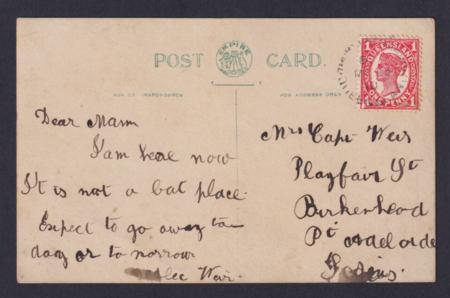 POST CARD.
EMPIRE
FOR CORRESPONDENCE
FOR ADDRESS ONLY
QUEENSLAND
1 1
ONE PENNY
Dear Mam
I am heal now
It is not a bat place.
Expect to go away to
day or to norrow
Alec Weir.
Mrs Capt Weir
Playfair St
Birkenhead
Pt Adelaide